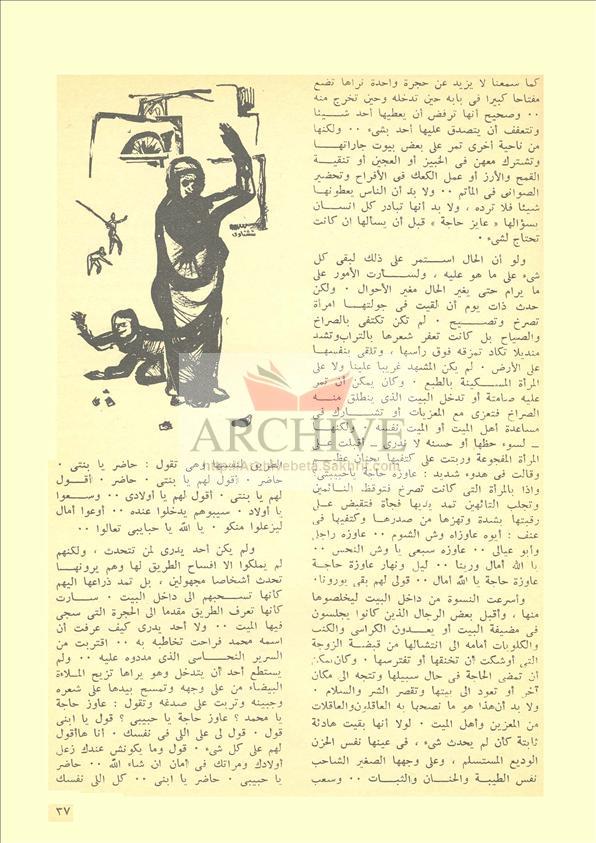 كما سمعنا لا يزيد عن حجرة واحدة نراها تضع
مفتاحا كبيرا فى بابه حين تدخله وحين تخرج منه
٠٠ وصحيح أنها ترفض أن يعطيها أحد شــيئا
وتتعفف أن يتصدق عليها أحد بشىء ٠٠ ولكنها
من ناحية أخرى تمر على بعض بيوت جاراتهــا
وتشترك معهن فى الخبيز أو العجين أو تنقيــة
القمح والأرز أو عمل الكعك فى الأفراح وتحضير
الصوانى فى المآتم ٠٠ ولا بد أن الناس يعطونهــا
شيئا فلا ترده ، ولا بد أنها تبادر كل انســان
بسؤالها « عايز حاجة » قبل أن يسألها ان كانت
تحتاج لشىء ٠
ولو أن الحال اســتمر على ذلك لبقى كل
شىء على ما هو عليه ، ولســارت الأمور على
ما يرام حتى يغير الحال مغير الأحوال ٠ ولكن
حدث ذات يوم أن لقيت فى جولتهــا امرأة
تصرخ وتصــيح ٠ لم تكن تكتفى بالصراخ
والصياح بل كانت تعفر شعرها بالتراب وتشد
منديلا تكاد تمزقه فوق رأسها ، وتلقى بنفسهـا
على الأرض ٠ لم يكن المشهد غريبا علينا ولا على
المرأة المســكينة بالطبع ٠ وكان يمكن أن تمر
عليه صامتة أو تدخل البيت الذى ينطلق منــه
الصراخ فتعزى مع المعزيات أو تشــارك فى
مساعدة أهل الميت أو الميت نفسه ٠ ولكنهــا
ــ لسوء حظها أو حسنه لا ندرى ــ أقبلت على
المرأة المفجوعة وربتت على كتفيها بحنان عظيــم
وقالت فى هدوء شديد : عاوزه حاجة ياحبيبتى؟
واذا بالمرأة التى كانت تصرخ فتوقظ النــائمين
وتجلب التائهين تمد يديها فجأة فتقبض على
رقبتها بشدة وتهزها من صدرها وكتفيها فى
عنف : أيوه عاوزاه وش الشوم ٠٠ عاوزه راجلى
وأبو عيالى ٠٠ عاوزه سبعى يا وش النحس ٠٠
يا الله أمال وريينا ٠٠ ليل ونهار عاوزة حاجــة
عاوزة حاجة يا الله أمال ٠٠ قولى لهم بقى يورونا٠
وأسرعت النسوة من داخل البيت ليخلصوها
منها ، وأقبل بعض الرجال الذين كانوا يجلسون
فى مضيفة البيت أو يعــدون الكراسى والكنب
والكلوبات أمامه الى انتشالها من قبضــة الزوجة
التى أوشكت أن تخنقها أو تفترسها ٠ وكان يمكن
ان تمضى الحاجة فى حال سبيلها وتتجه الى مكان
آخر أو تعود الى بيتها وتقصر الشر والسلام ٠
ولا بد أن هذا هو ما نصحها به العاقلون والعاقلات
من المعزين وأهل الميت ٠ لولا أنها بقيت هادئة
ثابتة كأن لم يحدث شىء ، فى عينها نفس الحزن
الوديع المستسلم ، وعلى وجهها الصغير الشاحب
نفس الطيبة والحنــان والثبــات ٠٠ وسعب
الطريق لنفسها وهى تقول : حاضر يا بنتى ٠
حاضر ٠ أقول لهم يا بنتى ٠ حاضر ٠ أقــول
لهم يا بنتى ٠ أقول لهم يا أولادى ٠٠ وســعوا
يا أولاد ٠ سيبوهم يدخلوا عنده ٠٠ أوعوا أمال
ليزعلوا منكو ٠ يا الله يا حبايبى تعالوا ٠٠
ولم يكن أحد يدرى لمن تتحدث ، ولكنهم
لم يملكوا الا افساح الطريق لها وهم يرونهــا
تحدث أشخاصا مجهولين ، بل تمد ذراعها اليهم
كأنها تســحبهم الى داخل البيت ٠ ســارت
كأنها تعرف الطريق مقدما الى الحجرة التى سجى
فيها الميت ٠٠ ولا أحد يدرى كيف عرفت أن
اسمه محمد فراحت تخاطبه به ٠٠ اقتربت من
السرير النحــاسى الذى مددوه عليه ٠٠ ولم
يستطع أحد أن يتدخل وهو يراها تزيح الملاءة
البيضاء من على وجهه وتمسح بيدها على شعره
وجبينه وتربت على صدغه وتقول : عاوز حاجة
يا محمد ؟ عاوز حاجة يا حبيبى ؟ قول يا ابنى
قول ٠ قول لى على اللى فى نفسك ٠ أنا هاأقول
لهم على كل شىء ٠ قول وما يكونش عندك زعل
أولادك ومراتك فى أمان ان شاء الله ٠٠ حاضر
يا حبيبى ٠ حاضر يا ابنى ٠٠ كل اللى نفسك
ARCHIVE
٣٧